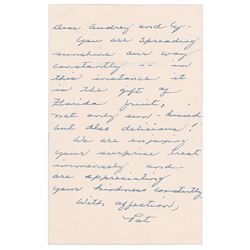 Dear Audrey and Cy -
You are spreading
sunshine our way
constantly -- in
this instance it
is the gift of
Florida fruit,
not only sun-kissed
but also delicious!
We are enjoying
your surprise treat
immensely and
are appreciating
your kindness constantly.
With affection,
Pat